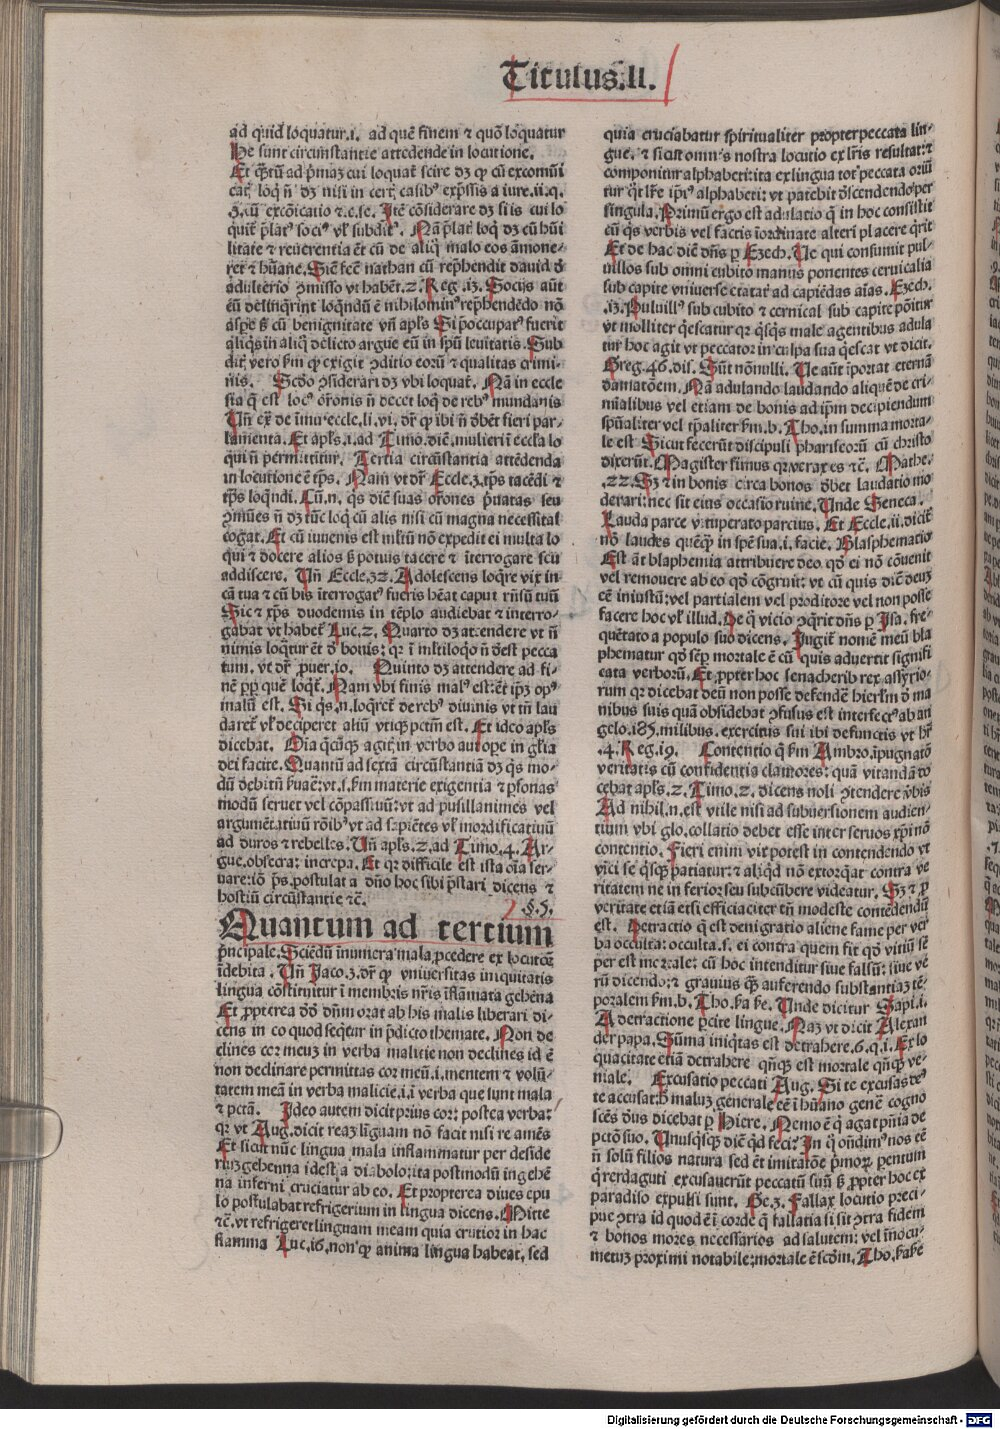 Titulus.II.
ad quid loquatur.i. ad quē finem ⁊ quō loquatur
He sunt circūstantie attēdende in locutione.
Et q̄ꝫtū ad p̄maꝫ cui loquat᷑ scire dꝫ ꝙ cū excom̄ūi
cat᷑ loq̄ nō dꝫ nisi in cert᷑ casibꝰ exp̄ssis a iure.ii.q.
3.cū excōicatio ⁊.c.se. Itē cōsiderare dꝫ si is cui lo
quit᷑ p̄latꝰ sociꝰ vl̓ subditꝰ. Nā p̄lat᷑ loq̄ dꝫ cū hūi
litate ⁊ reuerentia ēt cū de aliq̄ malo eos āmone-
ret ⁊ hūane. Sic̄ fec̄ nathan cū rep̄hendit dauid d̓
adulterio ꝯmisso vt habēt.2. Reg.i3. Socijs aūt
cū delinq̄rint loquēdū ē ⁊ nihilominꝰ rep̄hendēdo nō
asp̄e ꝫ cū benignitate vn̄ apl̓s Si p̄occupatꝰ fuerit
aliq̄s in aliq̄ delicto argue eū in sp̄u leuitatis. Sub
dit᷑ vero ẜm ꝙ exigit ꝯditio eorū ⁊ qualitas crimi-
nis. Scd̄o ꝯsiderari dꝫ vbi loquat᷑. Nā in eccle
sia q̄ est locꝰ or̄onis nō decet loq̄ de rebꝰ mundanis
Vn̄ ex̄ de īmu.eccle.li.vi. dr̄ ꝙ ibi nō dēbēt fieri par-
lamenta. Et apl̓s.i.ad Timo. diē. mulieri ī eccl̓a lo
qui nō permittitur. Tertia circūstantia attēdenda
in locutione ē tp̄s. Nam vt dr̄ Eccle.3.tp̄s tacēdi ⁊
tp̄s loq̄ndi. Cū.n. q̄s diē suas or̄ones p̄uatas seu
ꝯmūes nō dꝫ tūc loq̄ cū alijs nisi cū magna necessitas
cogat. Et cū iuuenis est multū nō expedit ei multa lo
qui ⁊ docere alios ꝫ potius tacere ⁊ īterrogare seu
addiscere. Vn̄ Eccle.32. Adolescens loq̄re vix in
cā tua ⁊ cū bis īterrogatꝰ fueris hēat caput rn̄sū tuū
Sic ⁊ xp̄s duodennis in tēplo audiebat ⁊ interro-
gabat vt habet᷑ Luc.2. Quarto dꝫ attendere vt nō
nimis loq̄tur ēt d̓ bonis: qꝛ ī multiloq̄o nō deest pecca
tum. vt dr̄ prouer.io. Quinto dꝫ attendere ad fi-
nē pp̄ quē loq̄t᷑. Nam vbi finis malꝰ est: ēt ip̄ꝫ opꝰ
malū est. Si q̄s.n.loq̄ret᷑ de rebꝰ diuinis vt in̄ lau
daret᷑ vl̓ deciperet aliū vtiqꝫ pctm̄ est. Et ideo apl̓s
dicebat. Oīa q̄cūqꝫ agit᷑ in verbo aut ope in gl̓ia
dei facite. Quantū ad sextā circūstātiā dꝫ q̄s mo-
dū debitū ẜuare: vt.s.ẜm materie exigentia ⁊ ꝑsonas
modū seruet vel cōpassiuū: vt ad pusillanimes vel
argumētatiuū rōībꝰ vt ad sapiētes vl̓ mordificatiuū
ad duros ⁊ rebelles. Vn̄ apl̓s.2.ad Timo.4. Ar-
gue.obsecra: increpa. Et qꝛ difficile est ista oīa ser-
uare: iō p̄s.postulat a dn̄o hoc sibi p̄stari dicens ⁊
hostiū circūstantie ⁊c. §.5.
Quantum ad tertium
p̄ncipale. Sciēdū īnumera mala ꝓcedere ex locutōe
īdebita. Vn̄ Jaco.3.dr̄ ꝙ vniuersitas iniquitatis
lingua cōstituitur ī membris nr̄is īflamata gehēna
Et ꝓpterea dd̄ dn̄m orat ab his malis liberari di-
cens in eo quod seq̄tur in p̄dicto themate. Non de
clines cor meuꝫ in verba malitie non declines id ē
non declinare permittas cor meū.i.mentem ⁊ volū-
tatem meā in verba malicie.i.ī verba que sunt mala
⁊ pctā. Ideo autem dicit prius cor: postea verba:
qꝛ vt Aug.dicit reaꝫ linguam nō facit nisi rea mēs
Et sicut nūc lingua mala inflammatur per deside
riuꝫ gehenna idest a diabolo: ita postmodū in gehē
na inferni cruciatur ab eo. Et propterea diues epu
lo postulabat refrigerium in lingua dicens. Mitte
⁊c.vt refrigeret linguam meam quia crucior in hac
flamma Luc.i6.non ꝙ anima linguā habeat, sed
quia cruciabatur spiritualiter propter peccata lin-
gue. ⁊ sicut omnis nostra locutio ex lr̄is resultat: ⁊
componitur alphabeti: ita ex lingua tot peccata oriū
tur q̄t lr̄e ip̄iꝰ alphabeti: vt patebit d̓scendendo per
singula. Primū ergo est adulatio q̄ in hoc consistit
cū q̄s verbis vel factis īordinate alteri placere q̄rit
Et de hac diē dn̄s ꝑ Ezech. Ve qui consuunt pul-
uillos sub omni cubito manus ponentes ceruicalia
sub capite vniuerse etatat᷑ ad capiēdas aīas. Ezech.
.i3. Puluillꝰ sub cubito ⁊ ceruical sub capite pōitur
vt molliter q̄escatur qꝛ q̄sq̄s male agentibus adula
tur hoc agit vt peccator in culpa sua q̄escat vt dicit.
Greg.46.dis. Sūt nōnulli. Ve aūt īportat eternā
damatōem. Nā adulando laudando aliquē de cri-
mīalibus vel etiam de bonis ad ip̄m decipiendum
sp̄ūaliter vel tp̄aliter ẜm.b. Tho.in summa morta-
le est Sicut fecerūt discipuli phariseorū cū christo
dixerūt. Magister scimus qꝛ verax es ⁊c̄. Mathe.
.22. Sꝫ ⁊ in bonis circa bonos d̓bet laudatio mo
derari: nec sit eius occasio ruine. Unde Seneca.
Lauda parce vitupera to parcius. Et Eccle.ii.dicit᷑
nō laudes quēq̄ꝫ in spē sua.i.facie. Blasphematio
Est āt blasphemia attribuere deo qd̓ ei nō cōuenit
vel remouere ab eo qd̓ cōgruit: vt cū quis diē deuꝫ
eē iniustū: vel partialem vel proditore vel non posse
facere hoc vl̓ illud. De q̄ vicio ꝯq̄rit᷑ dn̄s ꝑ Isa. fre-
quētato a populo suo dicens. Jugit᷑ nomē meū bla
phematur qd̓ sēp mortale ē cū quis aduertit signifi
cata verborū. Et ꝓpter hoc senacherib rex assyrio-
rum qꝛ dicebat deū non posse defendē hierl̓m d̓ ma
nibus suis quā obsidebat ꝯfusus est interfectꝰ ab an
gelo.i85.milibus.exercitus sui ibi defunctis vt hr̄
.4. Reg.i9. Contentio q̄ ẜm Ambro.īpugnatō
veritatis cū confidentia clamores: quā vitandā do
cebat apl̓s.2. Timo.2. dicens noli ꝯtendere v̓bis
Ad nihil.n.est vtile nisi ad subuersionem audien-
tium vbi glo.collatio debet esse inter seruos xp̄i nō
contentio. Fieri enim vix potest in contendendo vt
vīci se q̄sqꝫ patiatur: ⁊ aliq̄d nō extorq̄at contra ve
ritatem ne inferior seu subcūbere videatur. Sꝫ ⁊ ꝓ
veritate etiā etsi efficiaciter tn̄ modeste contēdendū
est. Detractio q̄ est denigratio aliene fame per ver
ba occulta: occulta.s.ei contra quem fit qd̓ vitiū sē
per est mortale: cū hoc intenditur siue falsū: siue ve
rū dicendo: ⁊ grauius q̄ꝫ auferendo substantiaꝫ tē-
poralem ẜm.b. Tho.ẜa ẜe. Unde dicitur Sapi.i.
A detractione ꝑcite lingue. Naꝫ vt dicit Alexan
der papa. Sūma iniq̄tas est detrahere.6.q.i. Ex lo
quacitate etiā detrahere qn̄qꝫ est mortale qn̄qꝫ ve-
niale. Excusatio peccati Aug. Si te excusas deꝰ
te accusat: ꝫ maluꝫ generale eē ī hūano genē cogno
scēs dn̄s dicebat ꝑ Hiere. Nemo ē q̄ agat pn̄ia de
pctō suo. Unusq̄sqꝫ diē q̄d feci? In q̄ on̄dimꝰ nos eē
nō solū filios natura sed ēt imitatōe p̄moꝝ parentum
q̄ rerdaguti excusauerūt peccatū suū ꝫ ꝓpter hoc ex
paradiso expulsi sunt. Ge.3. Fallax locutio preci-
pue ꝯtra id quod ē ī corde q̄ fallatia si sit ꝯtra fidem
⁊ bonos mores necessarios ad salutem: vel innocu-
metuꝫ proximi notabile: mortale ē scd̓m. Tho.ẜa ẜe
Digitalisierung gefördert durch die Deutsche Forschungsgemeinschaft - DFG